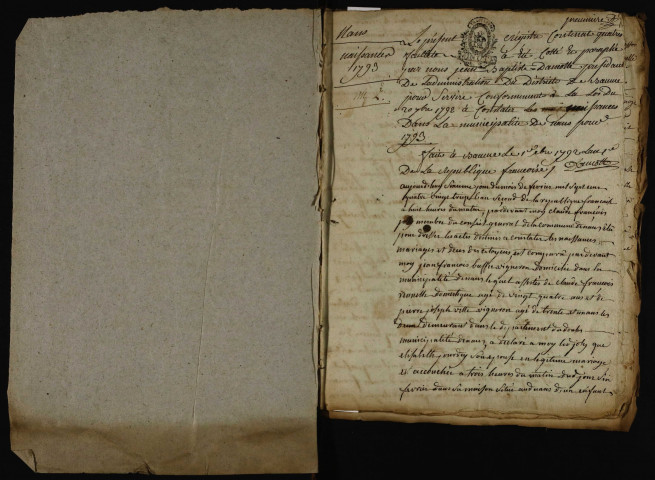 premiere
Nans
naissances
1793
Le present registre Contenant quatre
feuillets a été Cotté et paraphé
par nous jean Baptiste Damotte president
De Ladministration Du District de Baume
pour Servir Conformement a la Loi du
20 7bre 1792 a Constater les naissances
Dans La municipalité De nans pour
1793
fait a Baume le 1er Xbre 1792 Lan 1er
De La Republique francoise
aujourdhuy sixieme jour du mois de fevrier mil sept cent
quatre vingt treize lan second de la republique francoise
a huit heures du matin, pardevant moy claude francois
joly membre du conseil general de la commune de nans élu
pour dresser les actes destinés a constater les naissances
mariages et deces des citoyens est comparu pardevant
moy jean francois vigneron domicilié dans la
municipalité de nans lequel assisté de claude francois
domestique agé de vingt quatre ans et de
pierre joseph ville vigneron agé de trente et un ans les
deux demeurant dans le departement du doubs
municipalité de nans, a declaré a moy dit joly que
elisabeth son epouse en legitime mariage
est accouchée a trois heures du matin dud jour six
fevrier dans sa maison situé aud nans d'un enfant